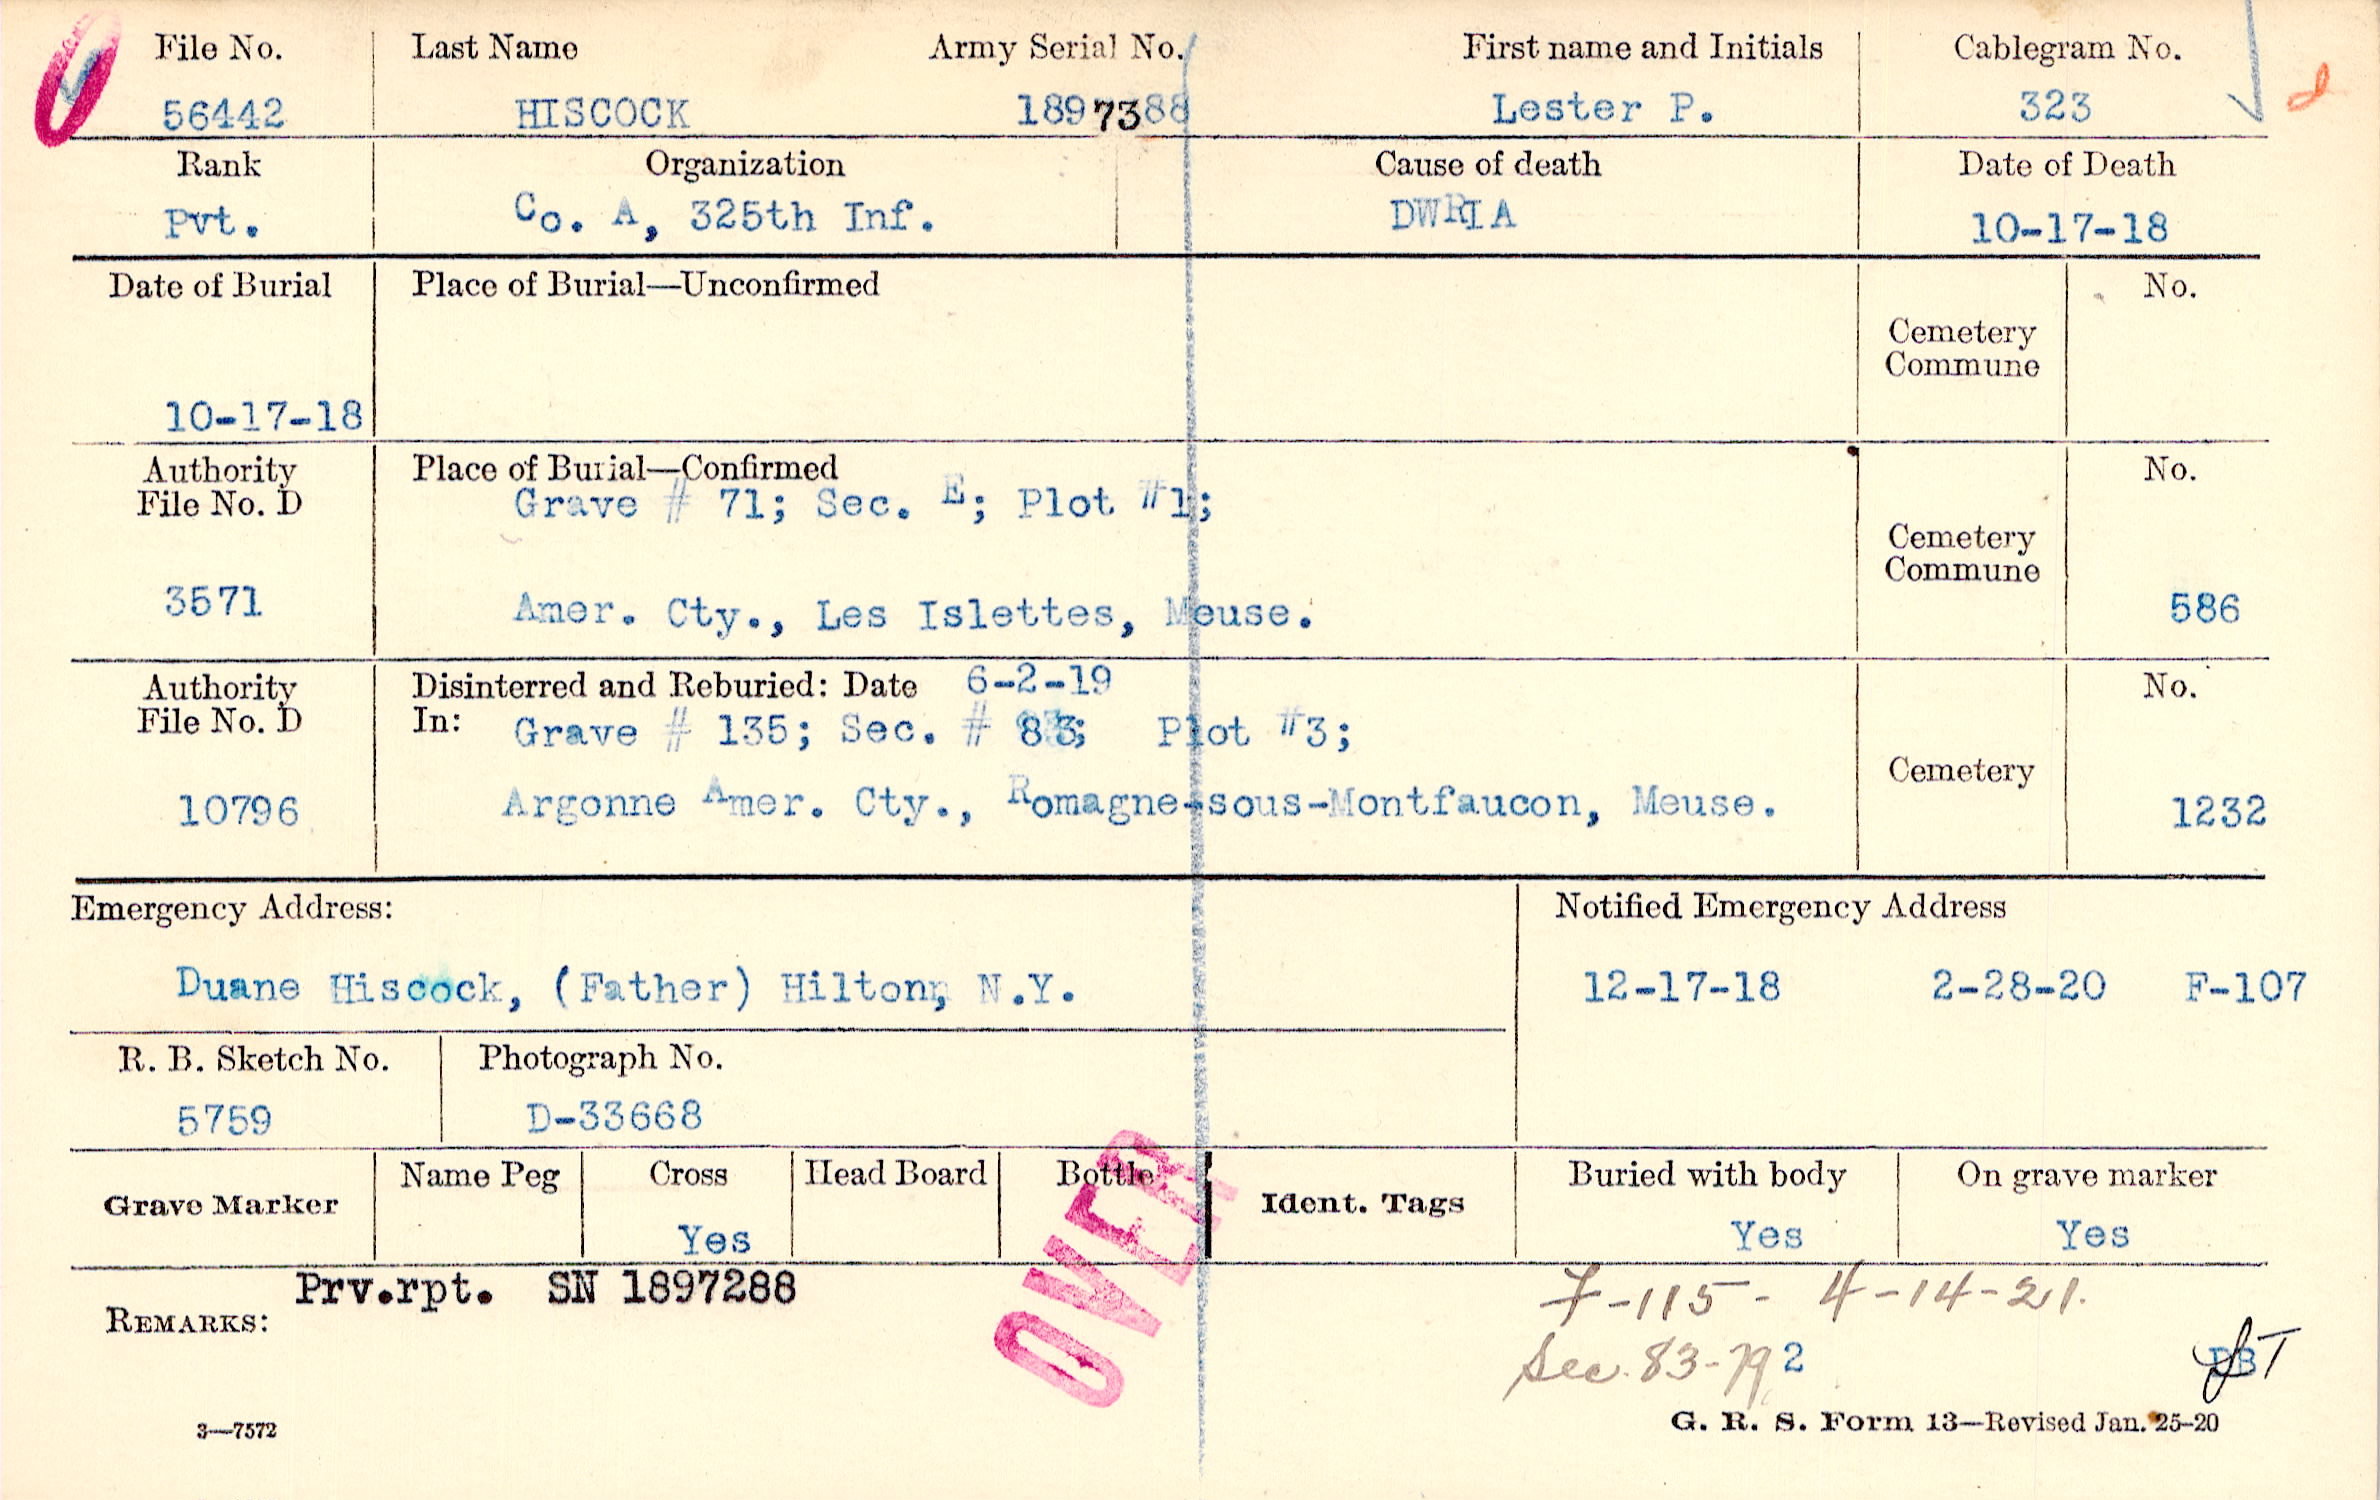 File No. Last Name Army Serial No. First name and Initials Cablegram No.
56442 HISCOCK 1897388 Lester P. 323
Rank Organization Cause of death Date of Death
Pvt. Co. A, 325th Inf. DWRIA 10-17-18
Date of Burial Place of Burial—Unconfirmed No.
Cemetery
Commune
10-17-18
Authority Place of Burial—Confirmed No.
File No. D Grave # 71; Sec. E; Plot #1;
Cemetery
Commune
3571 Amer. Cty., Les Islettes, Meuse. 586
Authority Disinterred and Reburied: Date 6-2-19 No.
File No. D In: Grave # 135; Sec. # 83; Plot #3;
Cemetery
10796 Argonne Amer. Cty., Romagne-sous-Montfaucon, Meuse. 1232
Emergency Address: Notified Emergency Address
Duane Hiscock, (Father) Hilton, N.Y. 12-17-18 2-28-20 F-107
R. B. Sketch No. Photograph No.
5759 D-33668
Grave Marker Name Peg Cross Head Board Bottle Ident. Tags Buried with body On grave marker
Yes Yes Yes
OVER
Prv.rpt. SN 1897288 F-115- 4-14-21.
REMARKS:
Sec. 83-79 2
3—7572 G. R. S. Form 13—Revised Jan. 25-20